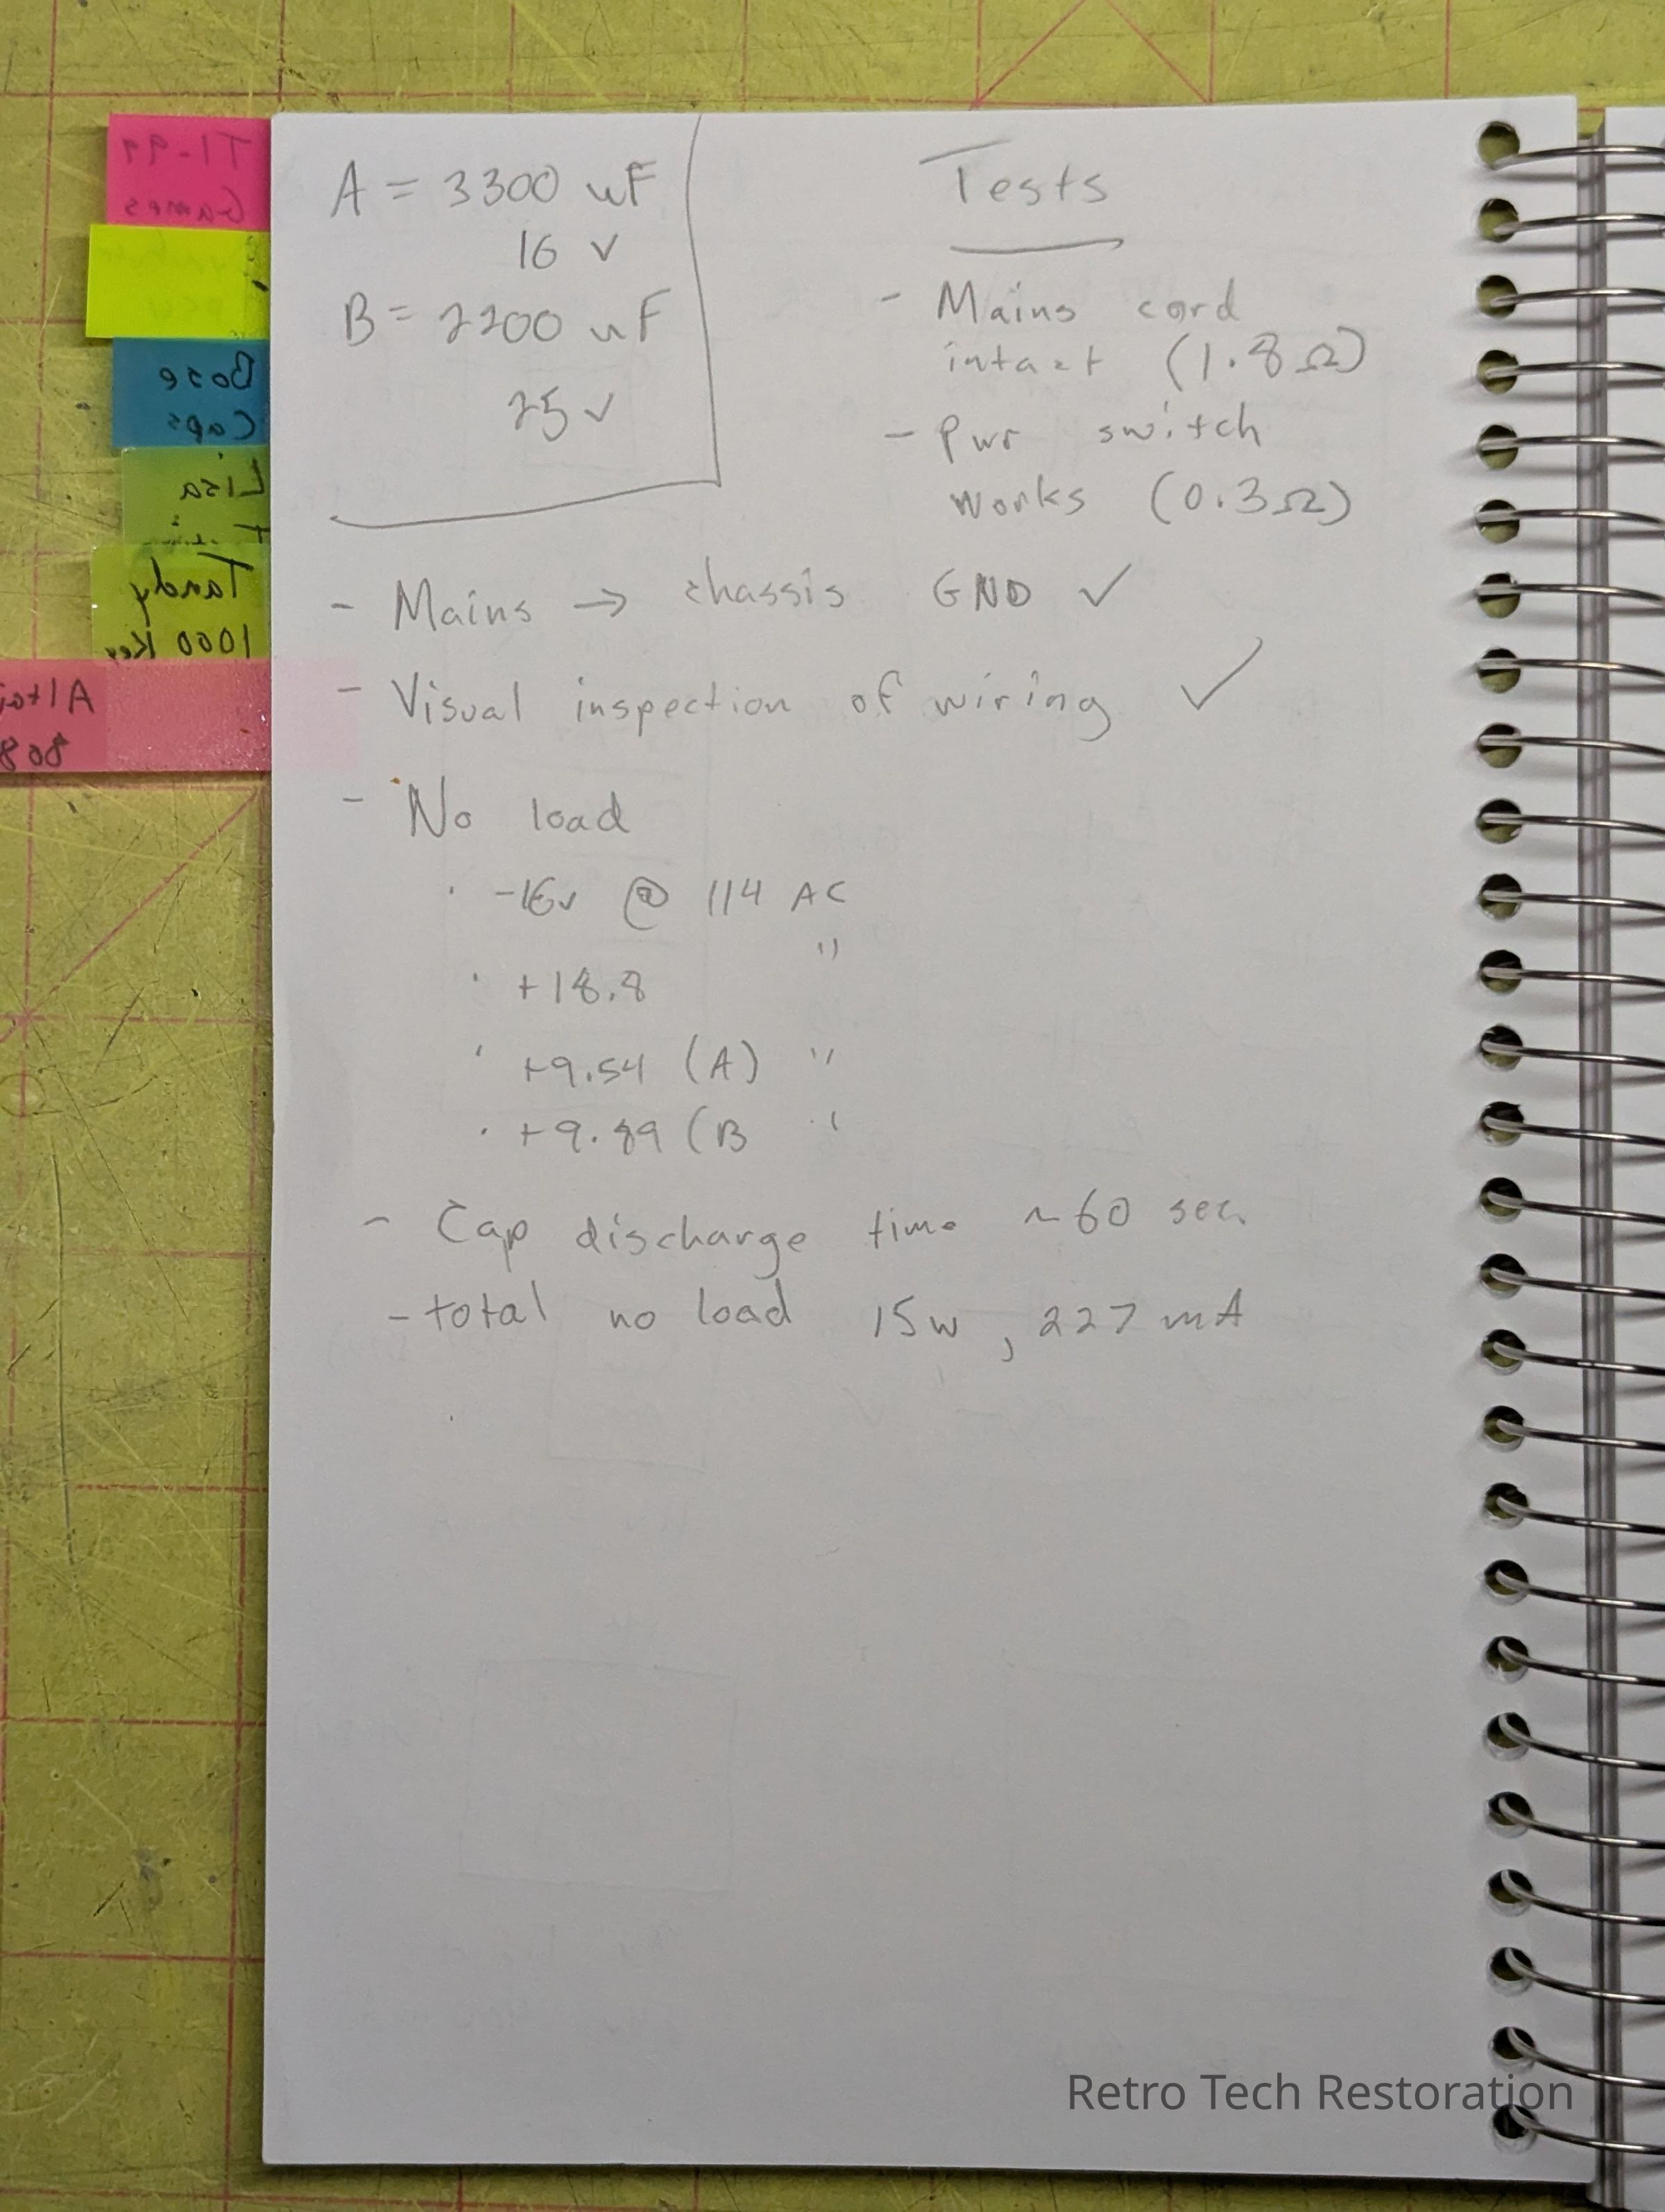 A = 3300 uF
16 v
B = 2200 uF
25 v
Tests
- Mains cord
intact (1.8 Ω)
- Pwr switch
works (0.3 Ω)
- Mains → chassis GND ✓
- Visual inspection of wiring ✓
- No load
· -16v @ 114 AC
· +18.8 "
· +9.54 (A) "
· +9.89 (B "
- Cap discharge time ~60 sec.
- total no load 15w, 227 mA
TI-99
Games
Bose
Caps
Lisa
Tandy
1000 Key
Altai
808
Retro Tech Restoration